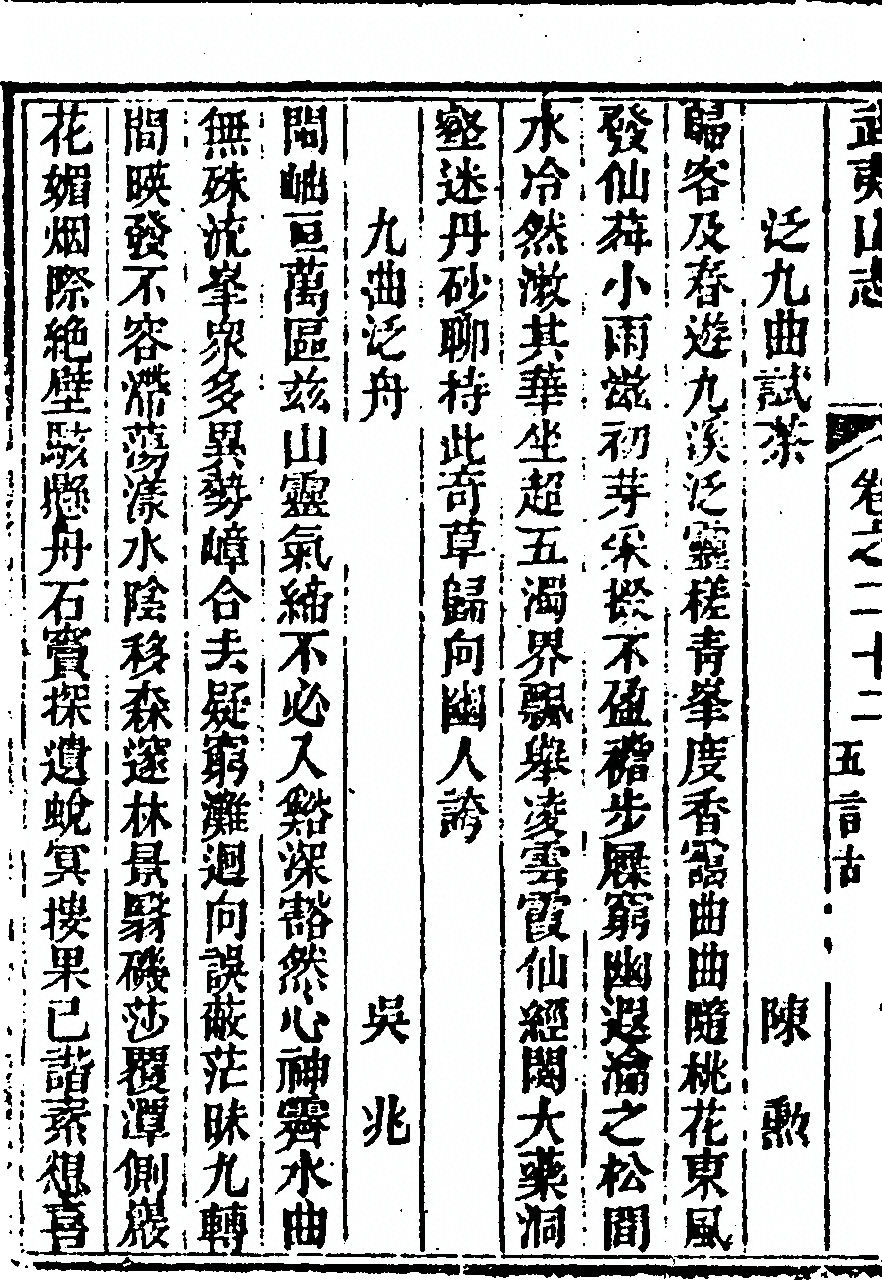 武夷山志 卷之二十二 五言古
泛九曲試茶 陳勲
歸客及春遊九溪泛靈槎青峯度香靄曲曲隨桃花東風
發仙荈小雨滋初芽采掇不盈襜步屧窮幽遐瀹之松間
水冷然漱其華坐超五濁界飄舉凌雲霞仙經閟大藥洞
壑迷丹砂聊持此奇草歸向幽人誇
九曲泛舟 吳兆
閩岫亘萬區兹山靈氣締不必入谿深豁然心神霽水曲
無殊流峯眾多異勢嶂合去疑窮灘迴向誤蔽茫昧九轉
間暎發不容滯蕩漾水陰移森邃林景翳磯莎覆潭側巖
花媚烟際絶壁駭懸舟石竇探遺蛻冥搜果已諧素想喜